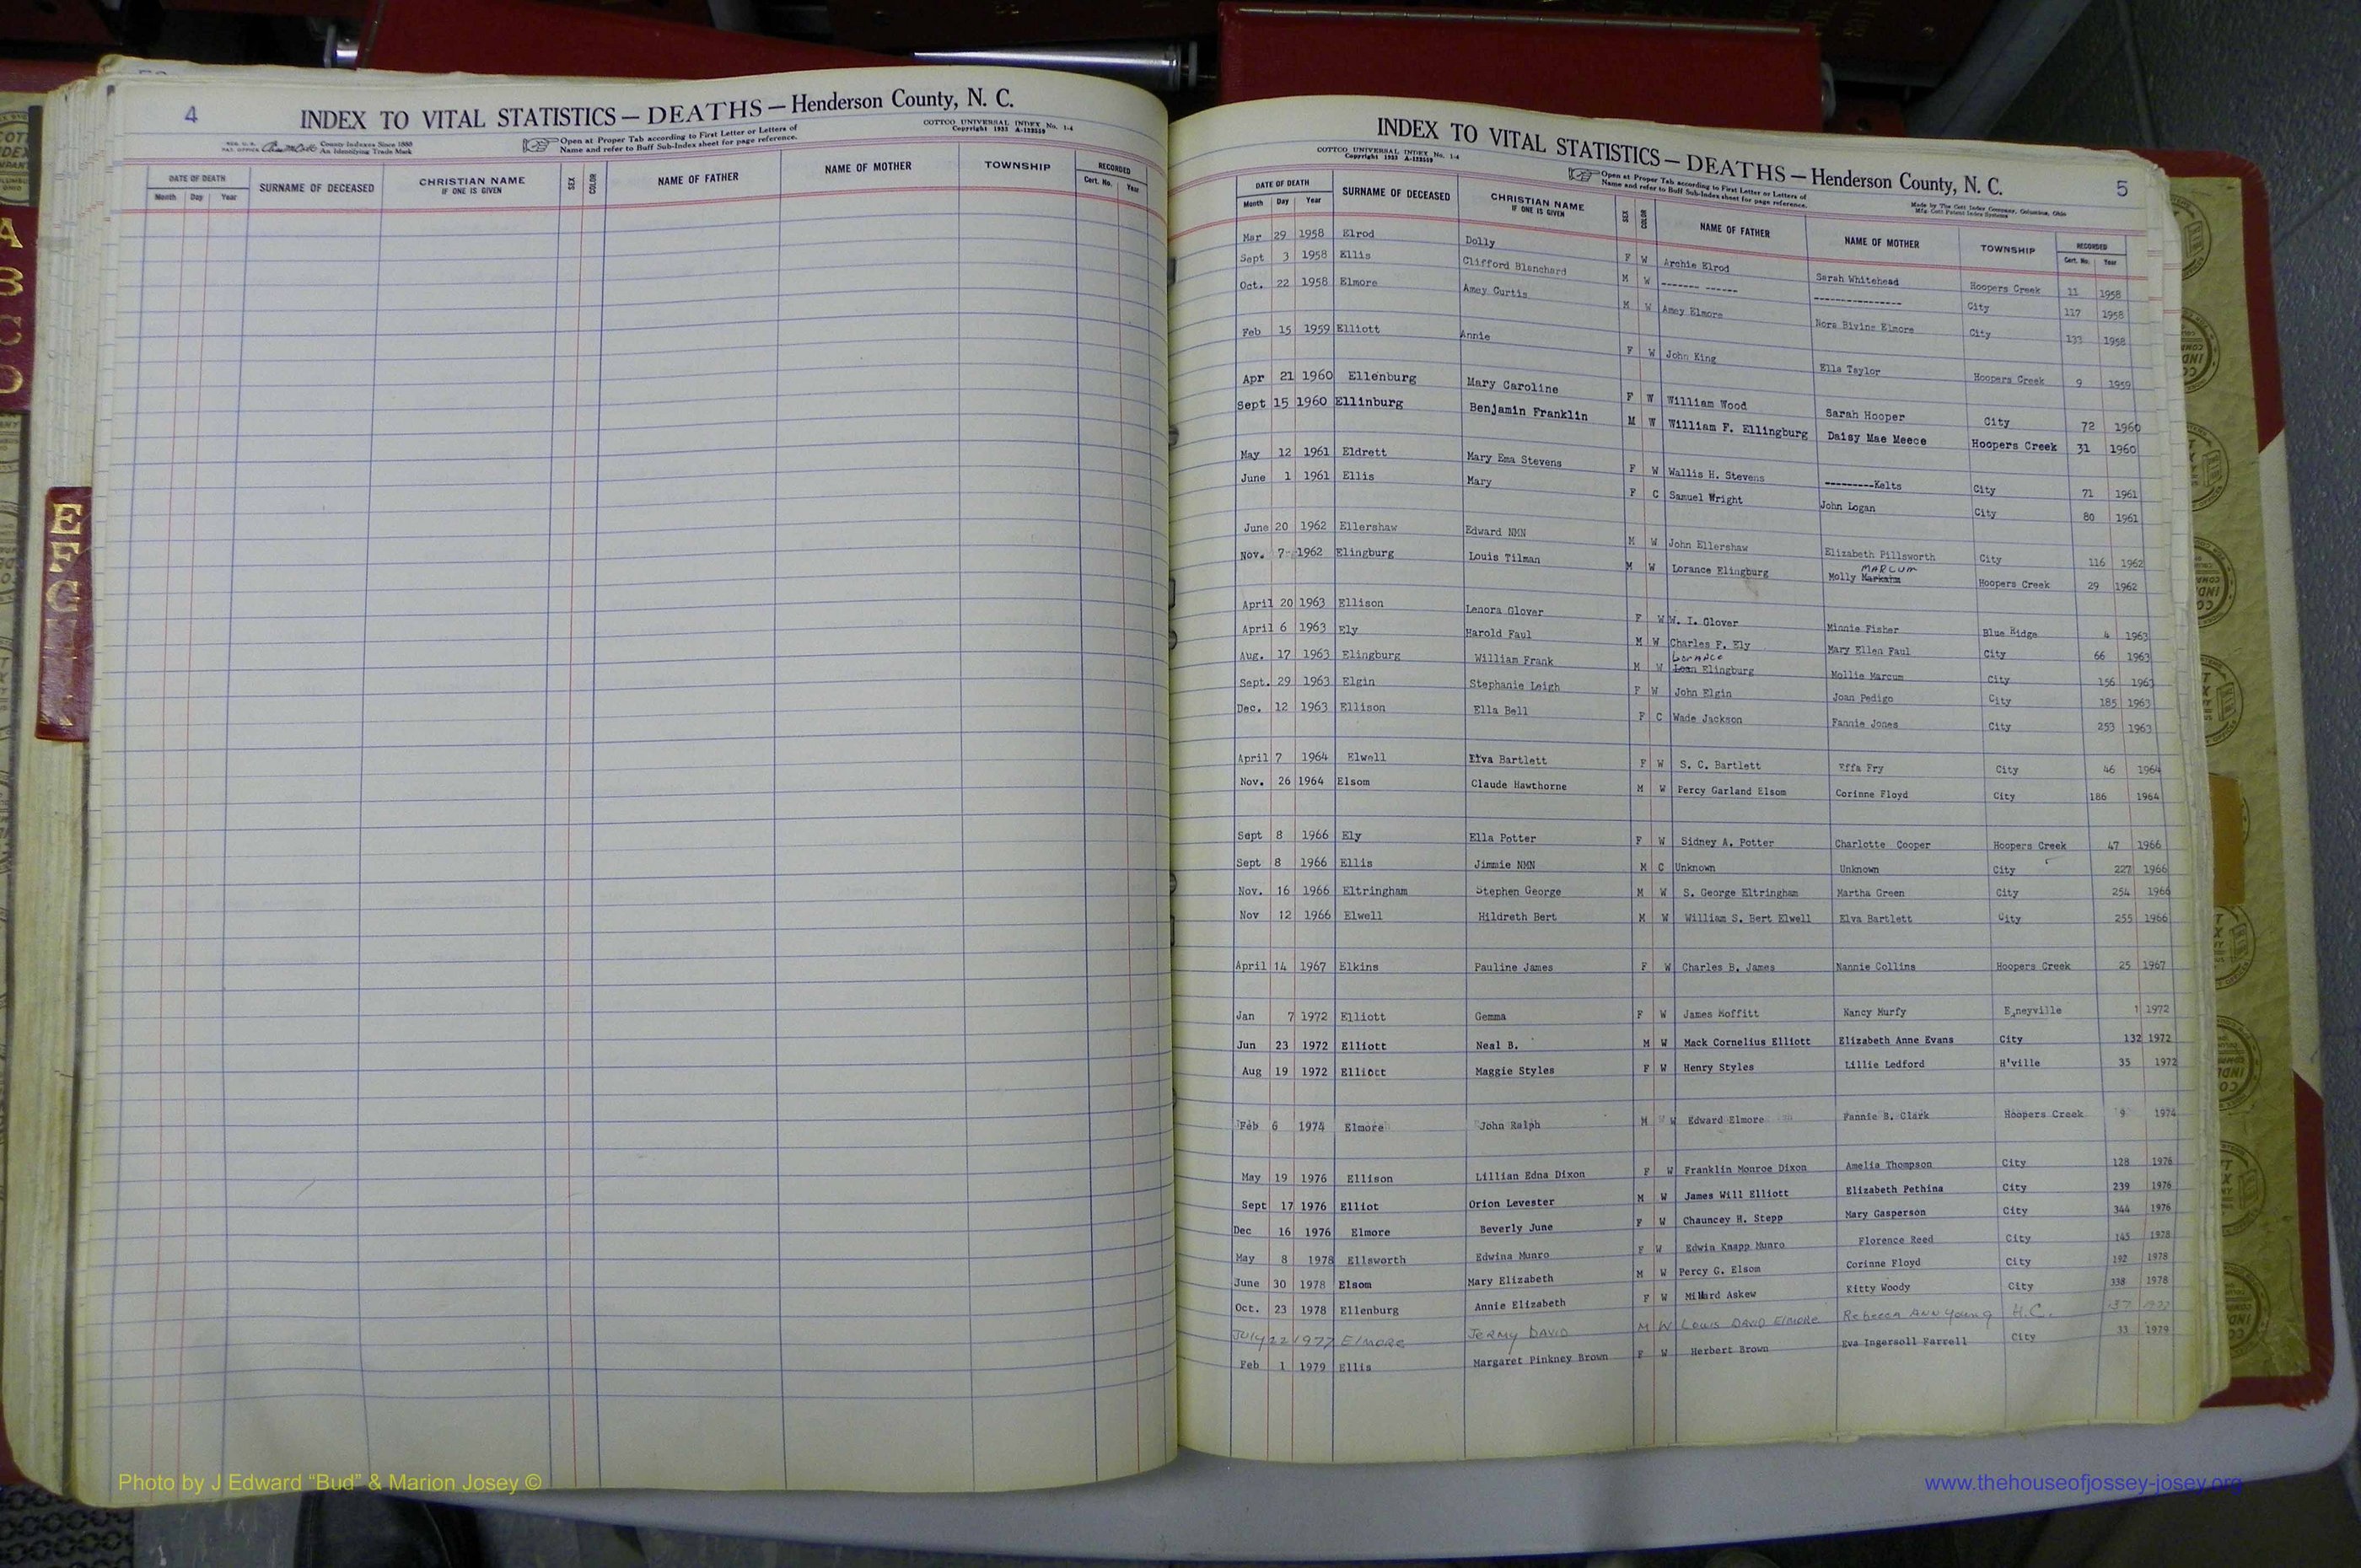 4
INDEX TO VITAL STATISTICS — DEATHS — Henderson County, N. C.
REG. U. S. PAT. OFFICE County Indexes Since 1888 An Identifying Trade Mark
Open at Proper Tab according to First Letter or Letters of
Name and refer to Buff Sub-Index sheet for page reference.
COTTCO UNIVERSAL INDEX No. 1-4
Copyright 1933 A-123519
DATE OF DEATH SURNAME OF DECEASED CHRISTIAN NAME IF ONE IS GIVEN SEX COLOR NAME OF FATHER NAME OF MOTHER TOWNSHIP RECORDED
Month Day Year Cert. No. Year
5
INDEX TO VITAL STATISTICS — DEATHS — Henderson County, N. C.
COTTCO UNIVERSAL INDEX No. 1-4
Copyright 1933 A-123519
Open at Proper Tab according to First Letter or Letters of
Name and refer to Buff Sub-Index sheet for page reference.
Made by The Cott Index Company, Columbus, Ohio
Mfg. Cott Patent Index Systems
DATE OF DEATH SURNAME OF DECEASED CHRISTIAN NAME IF ONE IS GIVEN SEX COLOR NAME OF FATHER NAME OF MOTHER TOWNSHIP RECORDED
Month Day Year Cert. No. Year
Mar 29 1958 Elrod Dolly F W Archie Elrod Sarah Whitehead Hoopers Creek 11 1958
Sept 3 1958 Ellis Clifford Blanchard M W ------- ------ ---------------- City 117 1958
Oct. 22 1958 Elmore Amey Curtis M W Amey Elmore Nora Bivins Elmore City 133 1958
Feb 15 1959 Elliott Annie F W John King Ella Taylor Hoopers Creek 9 1959
Apr 21 1960 Ellenburg Mary Caroline F W William Wood Sarah Hooper City 72 1960
Sept 15 1960 Ellinburg Benjamin Franklin M W William F. Ellingburg Daisy Mae Meece Hoopers Creek 31 1960
May 12 1961 Eldrett Mary Ema Stevens F W Wallis H. Stevens ---------Kelts City 71 1961
June 1 1961 Ellis Mary F C Samuel Wright John Logan City 80 1961
June 20 1962 Ellershaw Edward NMN M W John Ellershaw Elizabeth Pillsworth City 116 1962
Nov. 7 1962 Elingburg Louis Tilman M W Lorance Elingburg Molly Markaim MARCUM Hoopers Creek 29 1962
April 20 1963 Ellison Lenora Glover F W W. I. Glover Minnie Fisher Blue Ridge 4 1963
April 6 1963 Ely Harold Faul M W Charles F. Ely Mary Ellen Faul City 66 1963
Aug. 17 1963 Elingburg William Frank M W Lorance Elingburg Mollie Marcum City 156 1963
Sept. 29 1963 Elgin Stephanie Leigh F W John Elgin Joan Pedigo City 185 1963
Dec. 12 1963 Ellison Ella Bell F C Wade Jackson Fannie Jones City 253 1963
April 7 1964 Elwell Elva Bartlett F W S. C. Bartlett Effa Fry City 46 1964
Nov. 26 1964 Elsom Claude Hawthorne M W Percy Garland Elsom Corinne Floyd City 186 1964
Sept 8 1966 Ely Ella Potter F W Sidney A. Potter Charlotte Cooper Hoopers Creek 47 1966
Sept 8 1966 Ellis Jimmie NMN M C Unknown Unknown City 227 1966
Nov. 16 1966 Eltringham Stephen George M W S. George Eltringham Martha Green City 254 1966
Nov 12 1966 Elwell Hildreth Bert M W William S. Bert Elwell Elva Bartlett City 255 1966
April 14 1967 Elkins Pauline James F W Charles B. James Nannie Collins Hoopers Creek 25 1967
Jan 7 1972 Elliott Gemma F W James Moffitt Nancy Murfy E,neyville 1 1972
Jun 23 1972 Elliott Neal B. M W Mack Cornelius Elliott Elizabeth Anne Evans City 132 1972
Aug 19 1972 Elliott Maggie Styles F W Henry Styles Lillie Ledford H'ville 35 1972
Feb 6 1974 Elmore John Ralph M W Edward Elmore Fannie B. Clark Hoopers Creek 9 1974
May 19 1976 Ellison Lillian Edna Dixon F W Franklin Monroe Dixon Amelia Thompson City 128 1976
Sept 17 1976 Elliot Orion Levester M W James Will Elliott Elizabeth Pethina City 239 1976
Dec 16 1976 Elmore Beverly June F W Chauncey H. Stepp Mary Gasperson City 344 1976
May 8 1978 Ellsworth Edwina Munro F W Edwin Knapp Munro Florence Reed City 145 1978
June 30 1978 Elsom Mary Elizabeth M W Percy G. Elsom Corinne Floyd City 192 1978
Oct. 23 1978 Ellenburg Annie Elizabeth F W Millard Askew Kitty Woody City 338 1978
JULY 22 1977 ELMORE JERMY DAVID M W LOUIS DAVID ELMORE Rebecca ANN Young H.C. 37 1977
Feb 1 1979 Ellis Margaret Pinkney Brown F W Herbert Brown Eva Ingersoll Farrell City 33 1979
A
B
C
D
E
F
G
Photo by J Edward “Bud” & Marion Josey ©
www.thehouseofjossey-josey.org